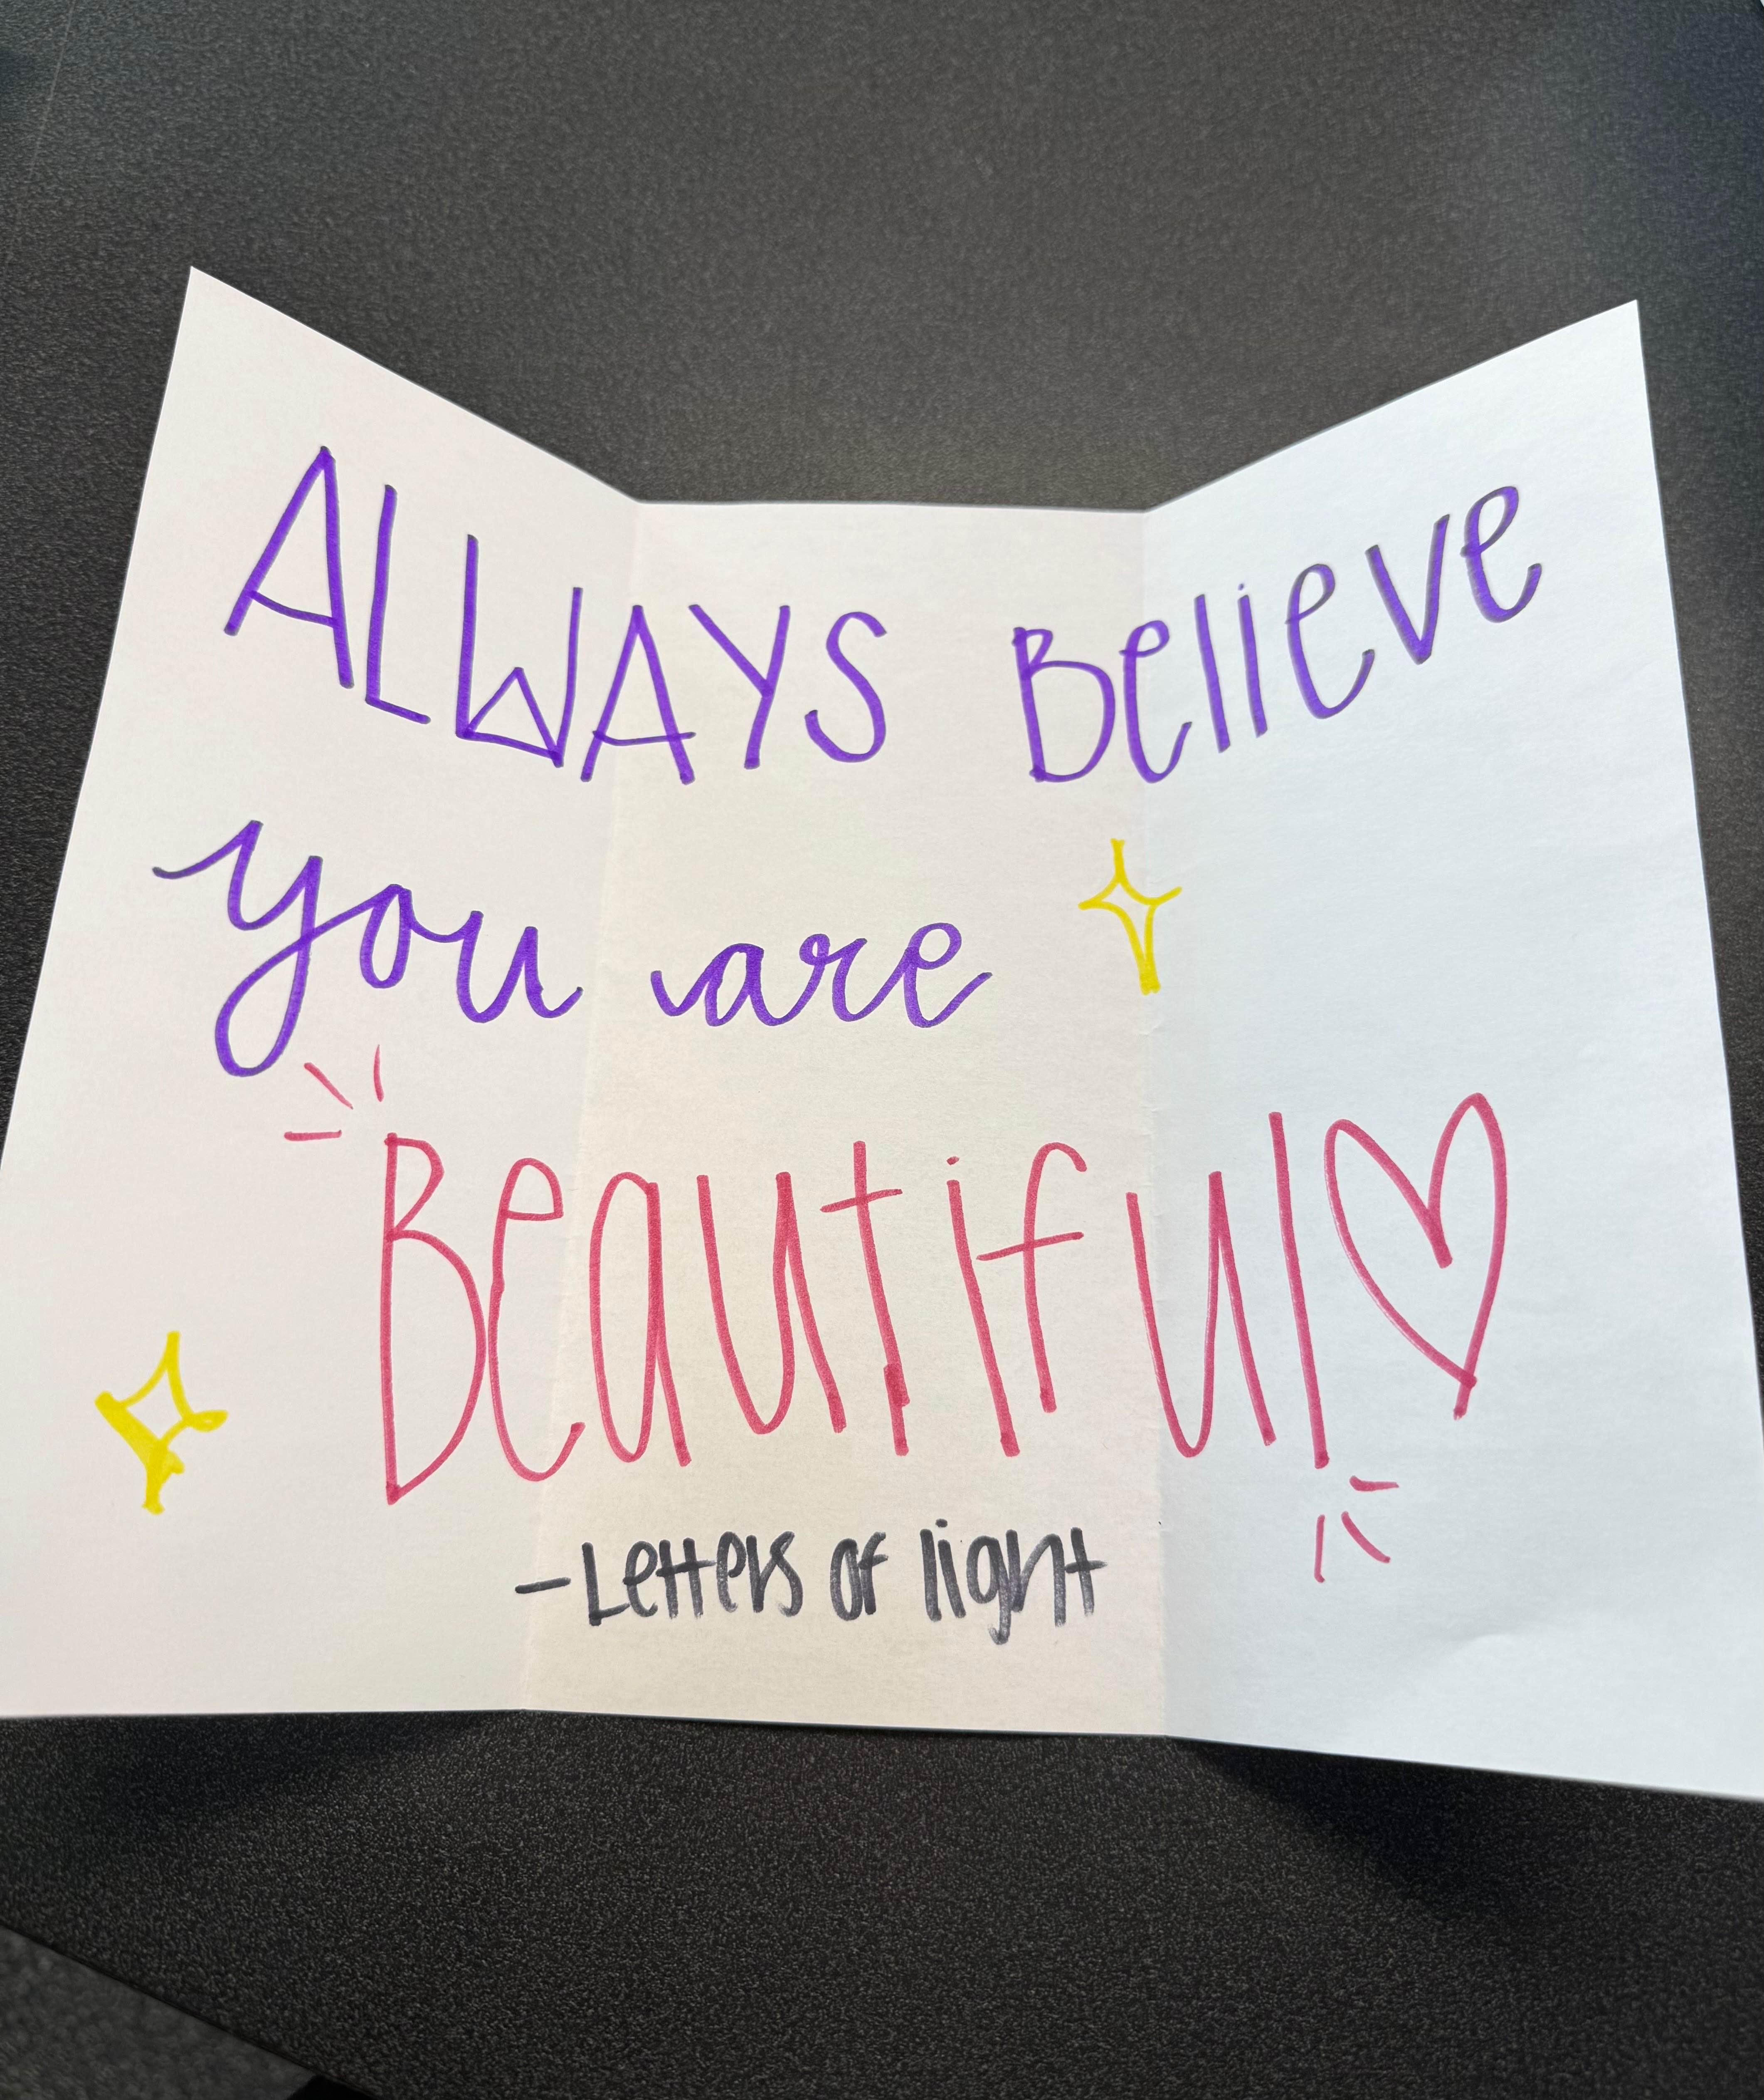 ALWAYS Believe
you are
Beautiful
-Letters of light